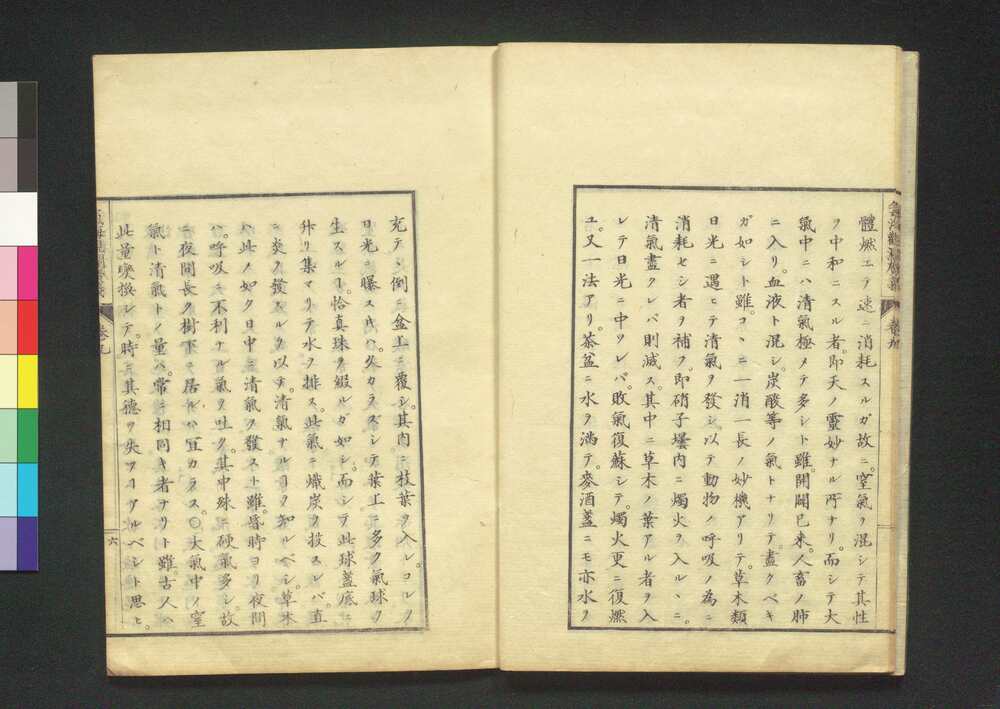 體燃エテ速ニ消耗スルガ故ニ。窒氣ヲ混シテ其性
ヲ中和ニスル者。即天ノ靈妙ナル所ナリ。而シテ大
氣中ニハ清氣極メテ多シト雖。開闢已來。人畜ノ肺
ニ入リ。血液ト混シ。炭酸等ノ氣トナリテ。盡クベキ
ガ如シト雖。コヽニ一消一長ノ妙機アリテ。草木類
日光ニ遇ヒテ清氣ヲ發シ。以テ動物ノ呼吸ノ為ニ
消耗セシ者ヲ補フ。即硝子壜内ニ燭火ヲ入ルヽニ。
清氣盡クレバ則滅ス。其中ニ草木ノ葉アル者ヲ入
レテ日光ニ中ツレバ。敗氣復蘇シテ。燭火更ニ復燃
ユ。又一法アリ。茶盆ニ水ヲ滿テ。麥酒盖ニモ亦水ヲ
充テヽ倒ニ盆上ニ覆シ。其内ニ枝葉ヲ入レ。コレヲ
日光ニ曝スレハ。久カラズシテ葉上ニ多ク氣球ヲ
生スル。恰真珠ヲ綴ルガ如シ。而シテ此球盖底ニ
升リ集マリテ水ヲ排ス。此氣ニ熾炭ヲ投スレバ。直
ニ炎ヲ發スルヲ以テ。清氣ナルヿヲ知ルベシ。草木
ハ此ノ如ク日中ニ清氣ヲ發スト雖。昏時ヨリ夜間
ハ。呼吸ニ不利ナル氣ヲ吐ク。其中殊ニ硬氣多シ。故
ニ夜間長ク樹下ニ居ルハ宜カラス。○大氣中ノ窒
氣ト清氣トノ量ハ。常ニ相同キ者ナリト雖。古人ハ
此量變換シテ。時ニ其德ヲ失フヿアルベシト思ヒ。
卷九
六